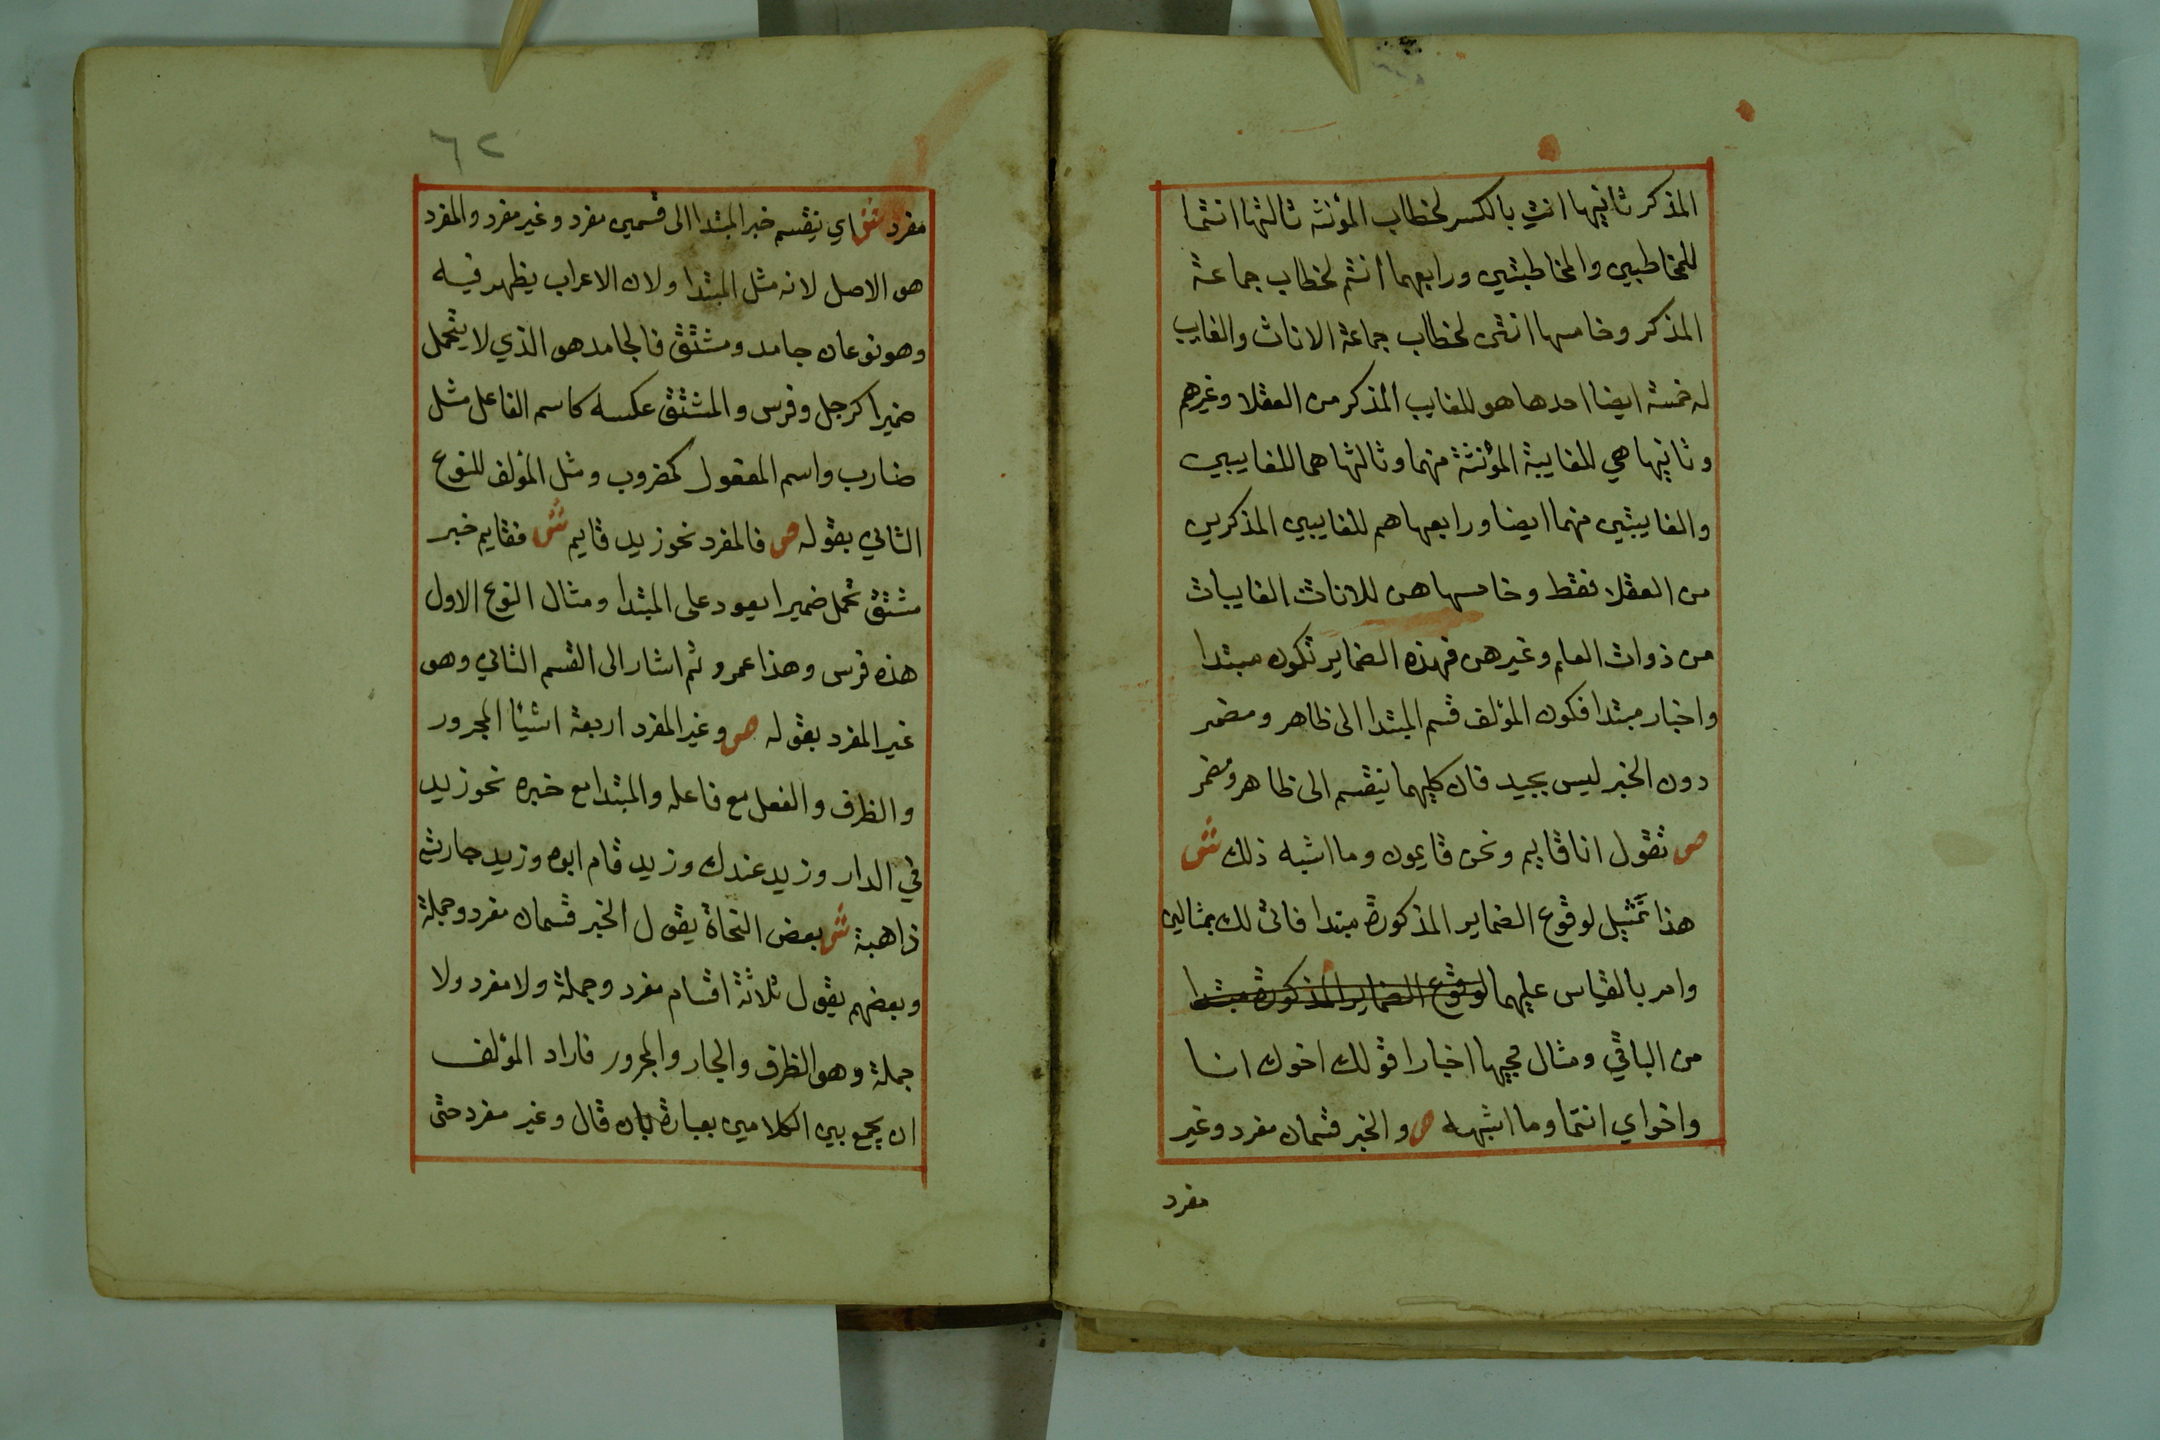 المذكر ثانيها انتِ بالكسر لخطاب المؤنثه ثالثها انتما
للمخاطبين والمخاطبتين ورابعهما أنتم لخطاب جماعة
المذكر وخامسها انتن لخطاب جماعة الاناث والغايب
له خمسة ايضا احدها هو للغايب المذكر من العقلا وغيرهم
وثانيها هي للغايبة المؤنثة منهما وثالثها هما للغايبين
والغايبتين منهما ايضا ورابعها هم للغايبين المذكرين
من العقلا فقط وخامسها هن للاناث الغايبات
من ذوات العلم وغيرهن فهذه الضماير تكون مبتدا
واخبار مبتدا فكون المؤلف قسم المبتدا الى ظاهر ومضمر
دون الخبر ليس بجيد فان كليهما ينقسم الى ظاهر ومضمر
ص تقول انا قايم ونحن قايمون وما اشبه ذلك ش
هذا تمثيل لوقوع الضماير المذكورة مبتدا فاتى لك بمثالين
وامر بالقياس عليهما لوقوع الضماير المذكورة مبتدا
من الباقي ومثال مجيها اخبارا قولك اخوك انا
واخواي انتما وما اشبهه ص والخبر قسمان مفرد وغير
مفرد
٦٢
مفرد ش اي ينقسم خبر المبتدا الى قسمين مفرد وغير مفرد والمفرد
هو الاصل لانه مثل المبتدا ولان الاعراب يظهر فيه
وهو نوعان جامد ومشتق فالجامد هو الذي لا يتحمل
ضميرا كرجل وفرس والمشتق عكسه كاسم الفاعل مثل
ضارب واسم المفعول كمضروب ومثل المؤلف للنوع
الثاني بقوله ص فالمفرد نحو زيد قايم ش فقايم خبر
مشتق تحمل ضميرا يعود على المبتدا ومثال النوع الاول
هذه فرس وهذا عمرو ثم اشار الى القسم الثاني وهو
غير المفرد بقوله ص وغير المفرد اربعة اشيأ المجرور
والظرف والفعل مع فاعله والمبتدا مع خبره نحو زيد
في الدار وزيد عندك وزيد قام ابوه وزيد جاريته
ذاهبة ش بعض النحاة يقول الخبر قسمان مفرد وجملة
وبعضهم يقول ثلاثة اقسام مفرد وجملة ولا مفرد ولا
جملة وهو الظرف والجار والمجرور فاراد المؤلف
ان يجمع بين الكلامين بعبارة بان قال وغير مفرد حتى